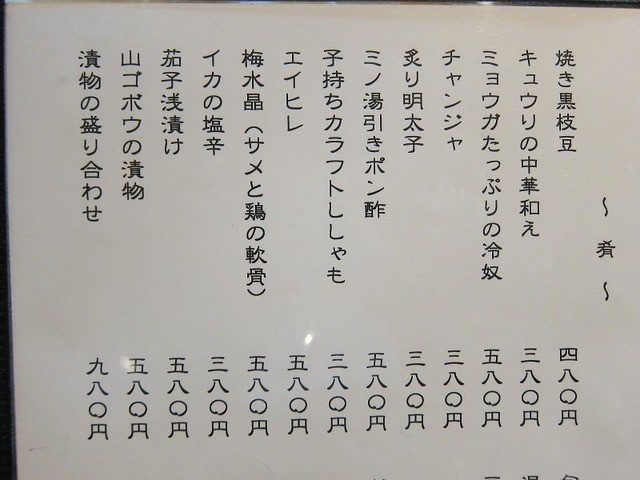 ～ 肴 ～
焼き黒枝豆 四八〇円
キュウリの中華和え 三八〇円
ミョウガたっぷりの冷奴 五八〇円
チャンジャ 三八〇円
炙り明太子 三八〇円
ミノ湯引きポン酢 五八〇円
子持ちカラフトししゃも 三八〇円
エイヒレ 五八〇円
梅水晶（サメと鶏の軟骨） 五八〇円
イカの塩辛 三八〇円
茄子浅漬け 五八〇円
山ゴボウの漬物 五八〇円
漬物の盛り合わせ 九八〇円